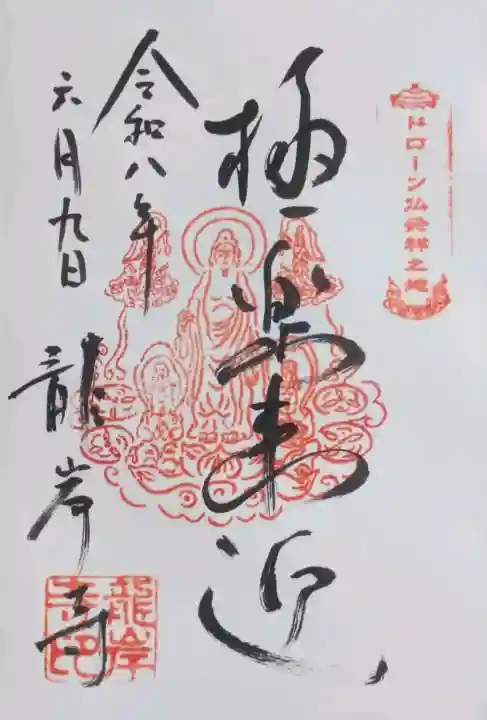 ドローン仏発祥之地
極楽来迎
令和八年
六月九日
龍岸寺
龍岸寺印